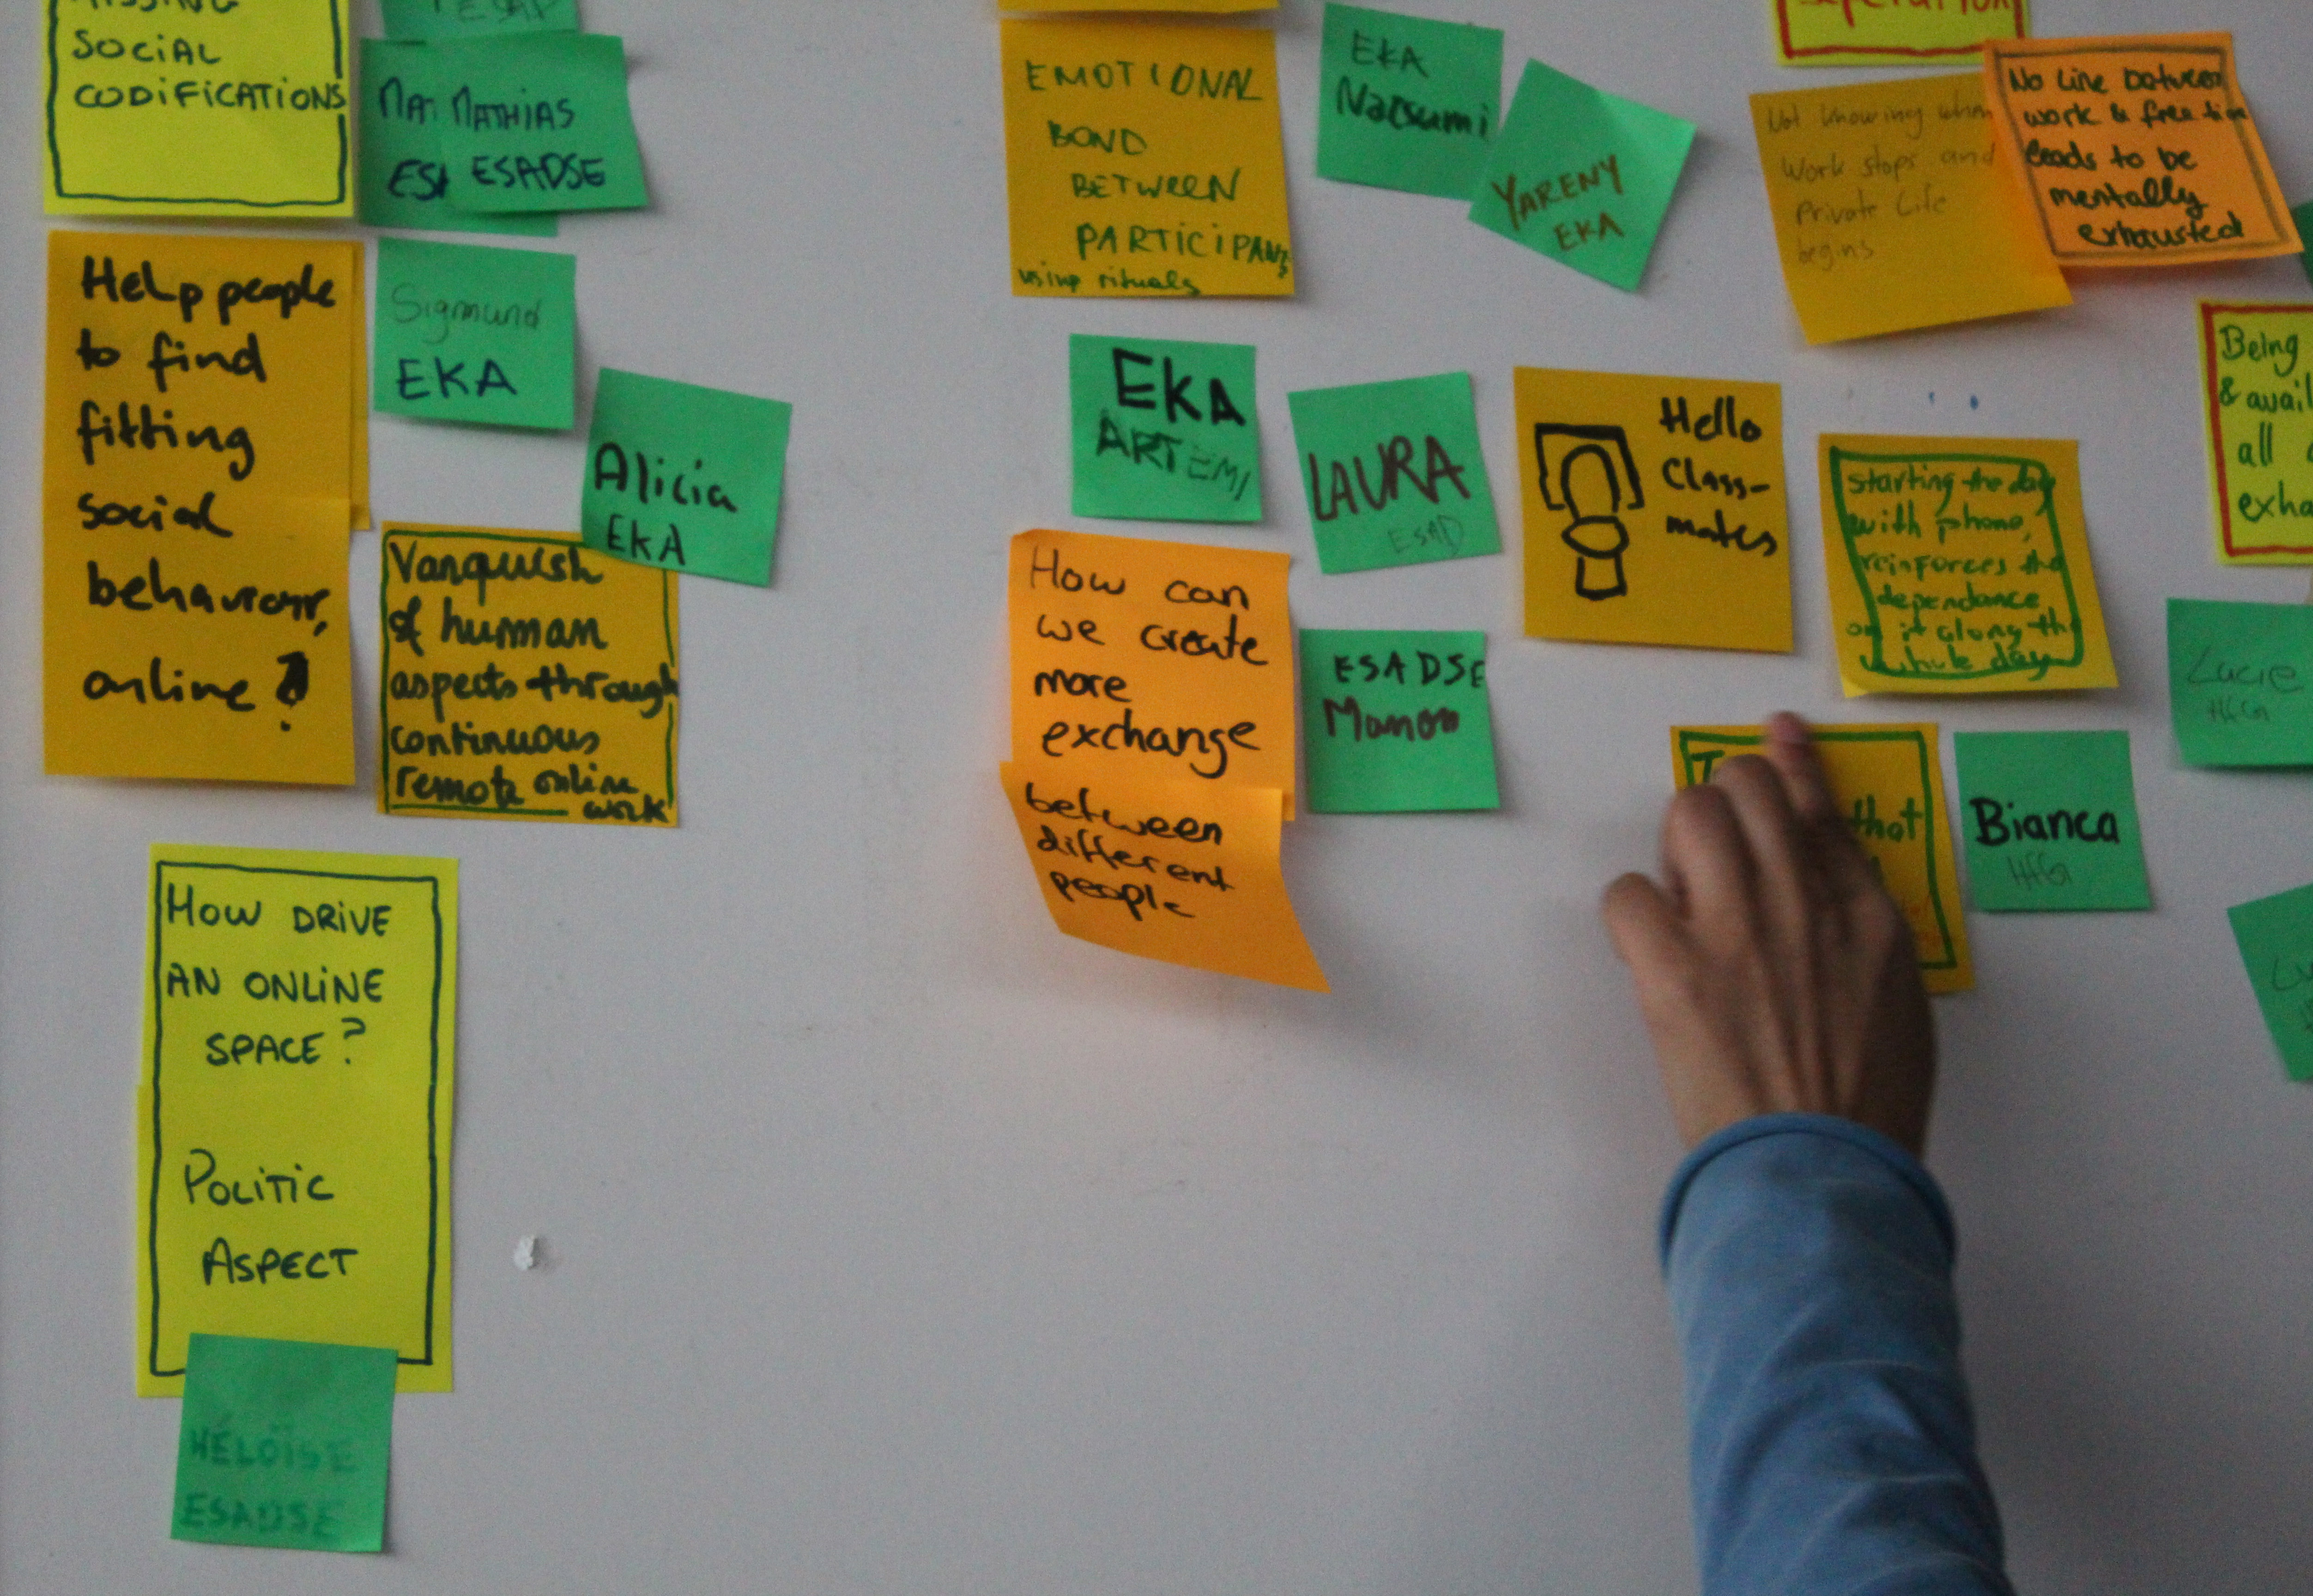 SOCIAL
CODIFICATIONS
MATHIAS
ESADSE
Help people
to find
fitting
social
behaviour,
online?
Sigmund
EKA
Alicia
EKA
Vanquish
of human
aspects through
continuous
remote online
work
HOW DRIVE
AN ONLINE
SPACE?
POLITIC
ASPECT
HÉLOÏSE
ESADSE
EMOTIONAL
BOND
BETWEEN
PARTICIPANTS
using rituals
EKA
Natsumi
YARENY
EKA
EKA
ARTEMI
LAURA
ESAD
How can
we create
more
exchange
between
different
people
ESADSE
Manon
Hello
Class-
mates
Not knowing when
Work stops and
Private Life
begins
No line between
work & free time
leads to be
mentally
exhausted
starting the day
with phone,
reinforces the
dependance
on it along the
whole day
that
Bianca
HfG
Being
& avail
all
exha
Lucie
HfG